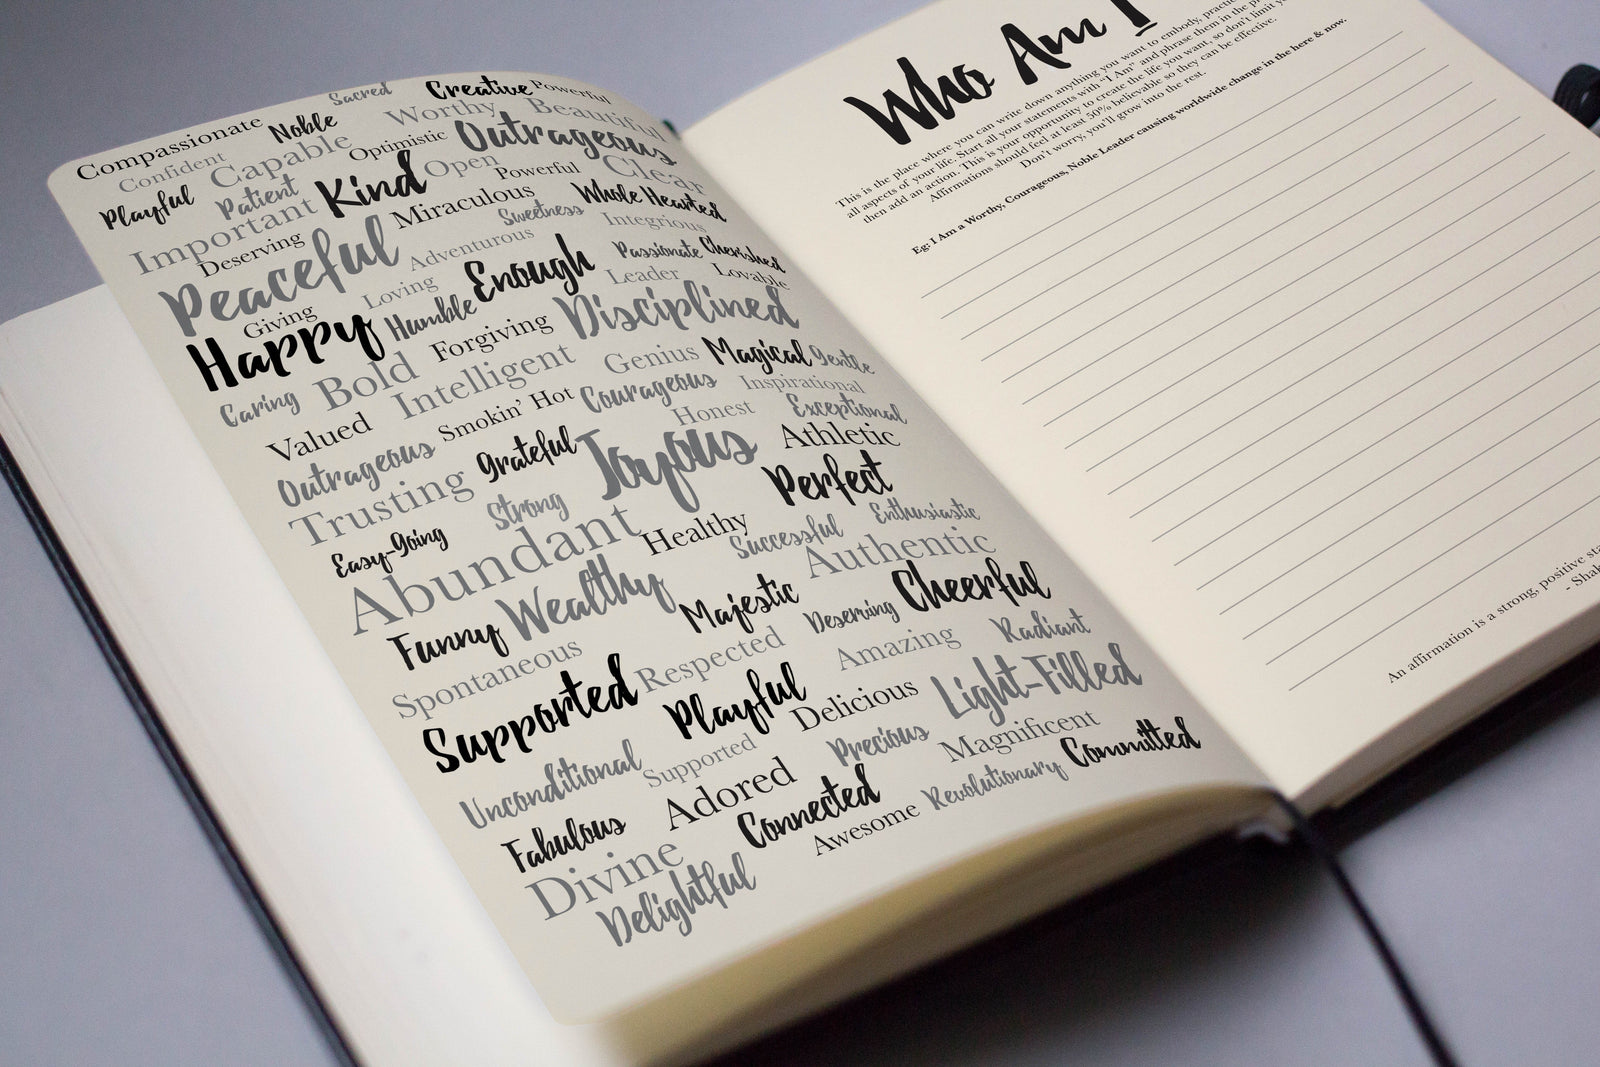 Sacred Creative Powerful
Compassionate Noble Worthy Beautiful
Confident Capable Optimistic Outrageous
Playful Patient Kind Open Powerful Clear
Important Miraculous Sweetness Whole Hearted
Deserving Peaceful Adventurous Integrious
Giving Loving Enough Passionate Cherished
Happy Humble Leader Lovable
Bold Forgiving Disciplined
Caring Intelligent Genius Magical Gentle
Valued Smokin' Hot Courageous Inspirational
Outrageous Grateful Honest Exceptional
Trusting Joyous Athletic
Easy-Going Strong Perfect
Abundant Healthy Successful Enthusiastic
Funny Wealthy Authentic
Spontaneous Majestic Deserving Cheerful
Supported Respected Amazing Radiant
Playful Delicious Light-Filled
Unconditional Supported Precious Magnificent
Fabulous Adored Connected Revolutionary Committed
Divine Awesome
Delightful
Who Am I
This is the place where you can write down anything you want to embody,
all aspects of your life. Start all your statements with "I Am" and phrase them in the
then add an action. This is your opportunity to create the life you want, so don't limit
Affirmations should feel at least 50% believable so they can be effective.
Don't worry, you'll grow into the rest.
Eg: I Am a Worthy, Courageous, Noble Leader causing worldwide change in the here & now.
An affirmation is a strong, positive